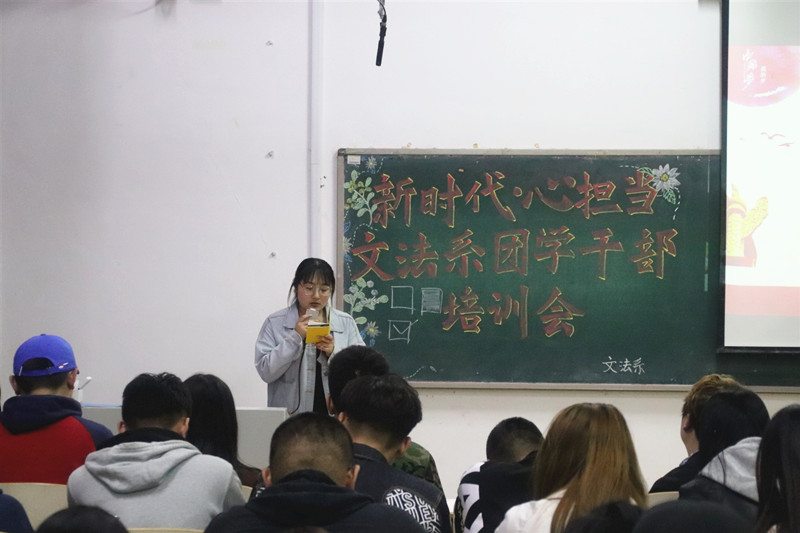 新时代·心担当
文法系团学干部
培训会
文法系
中国梦